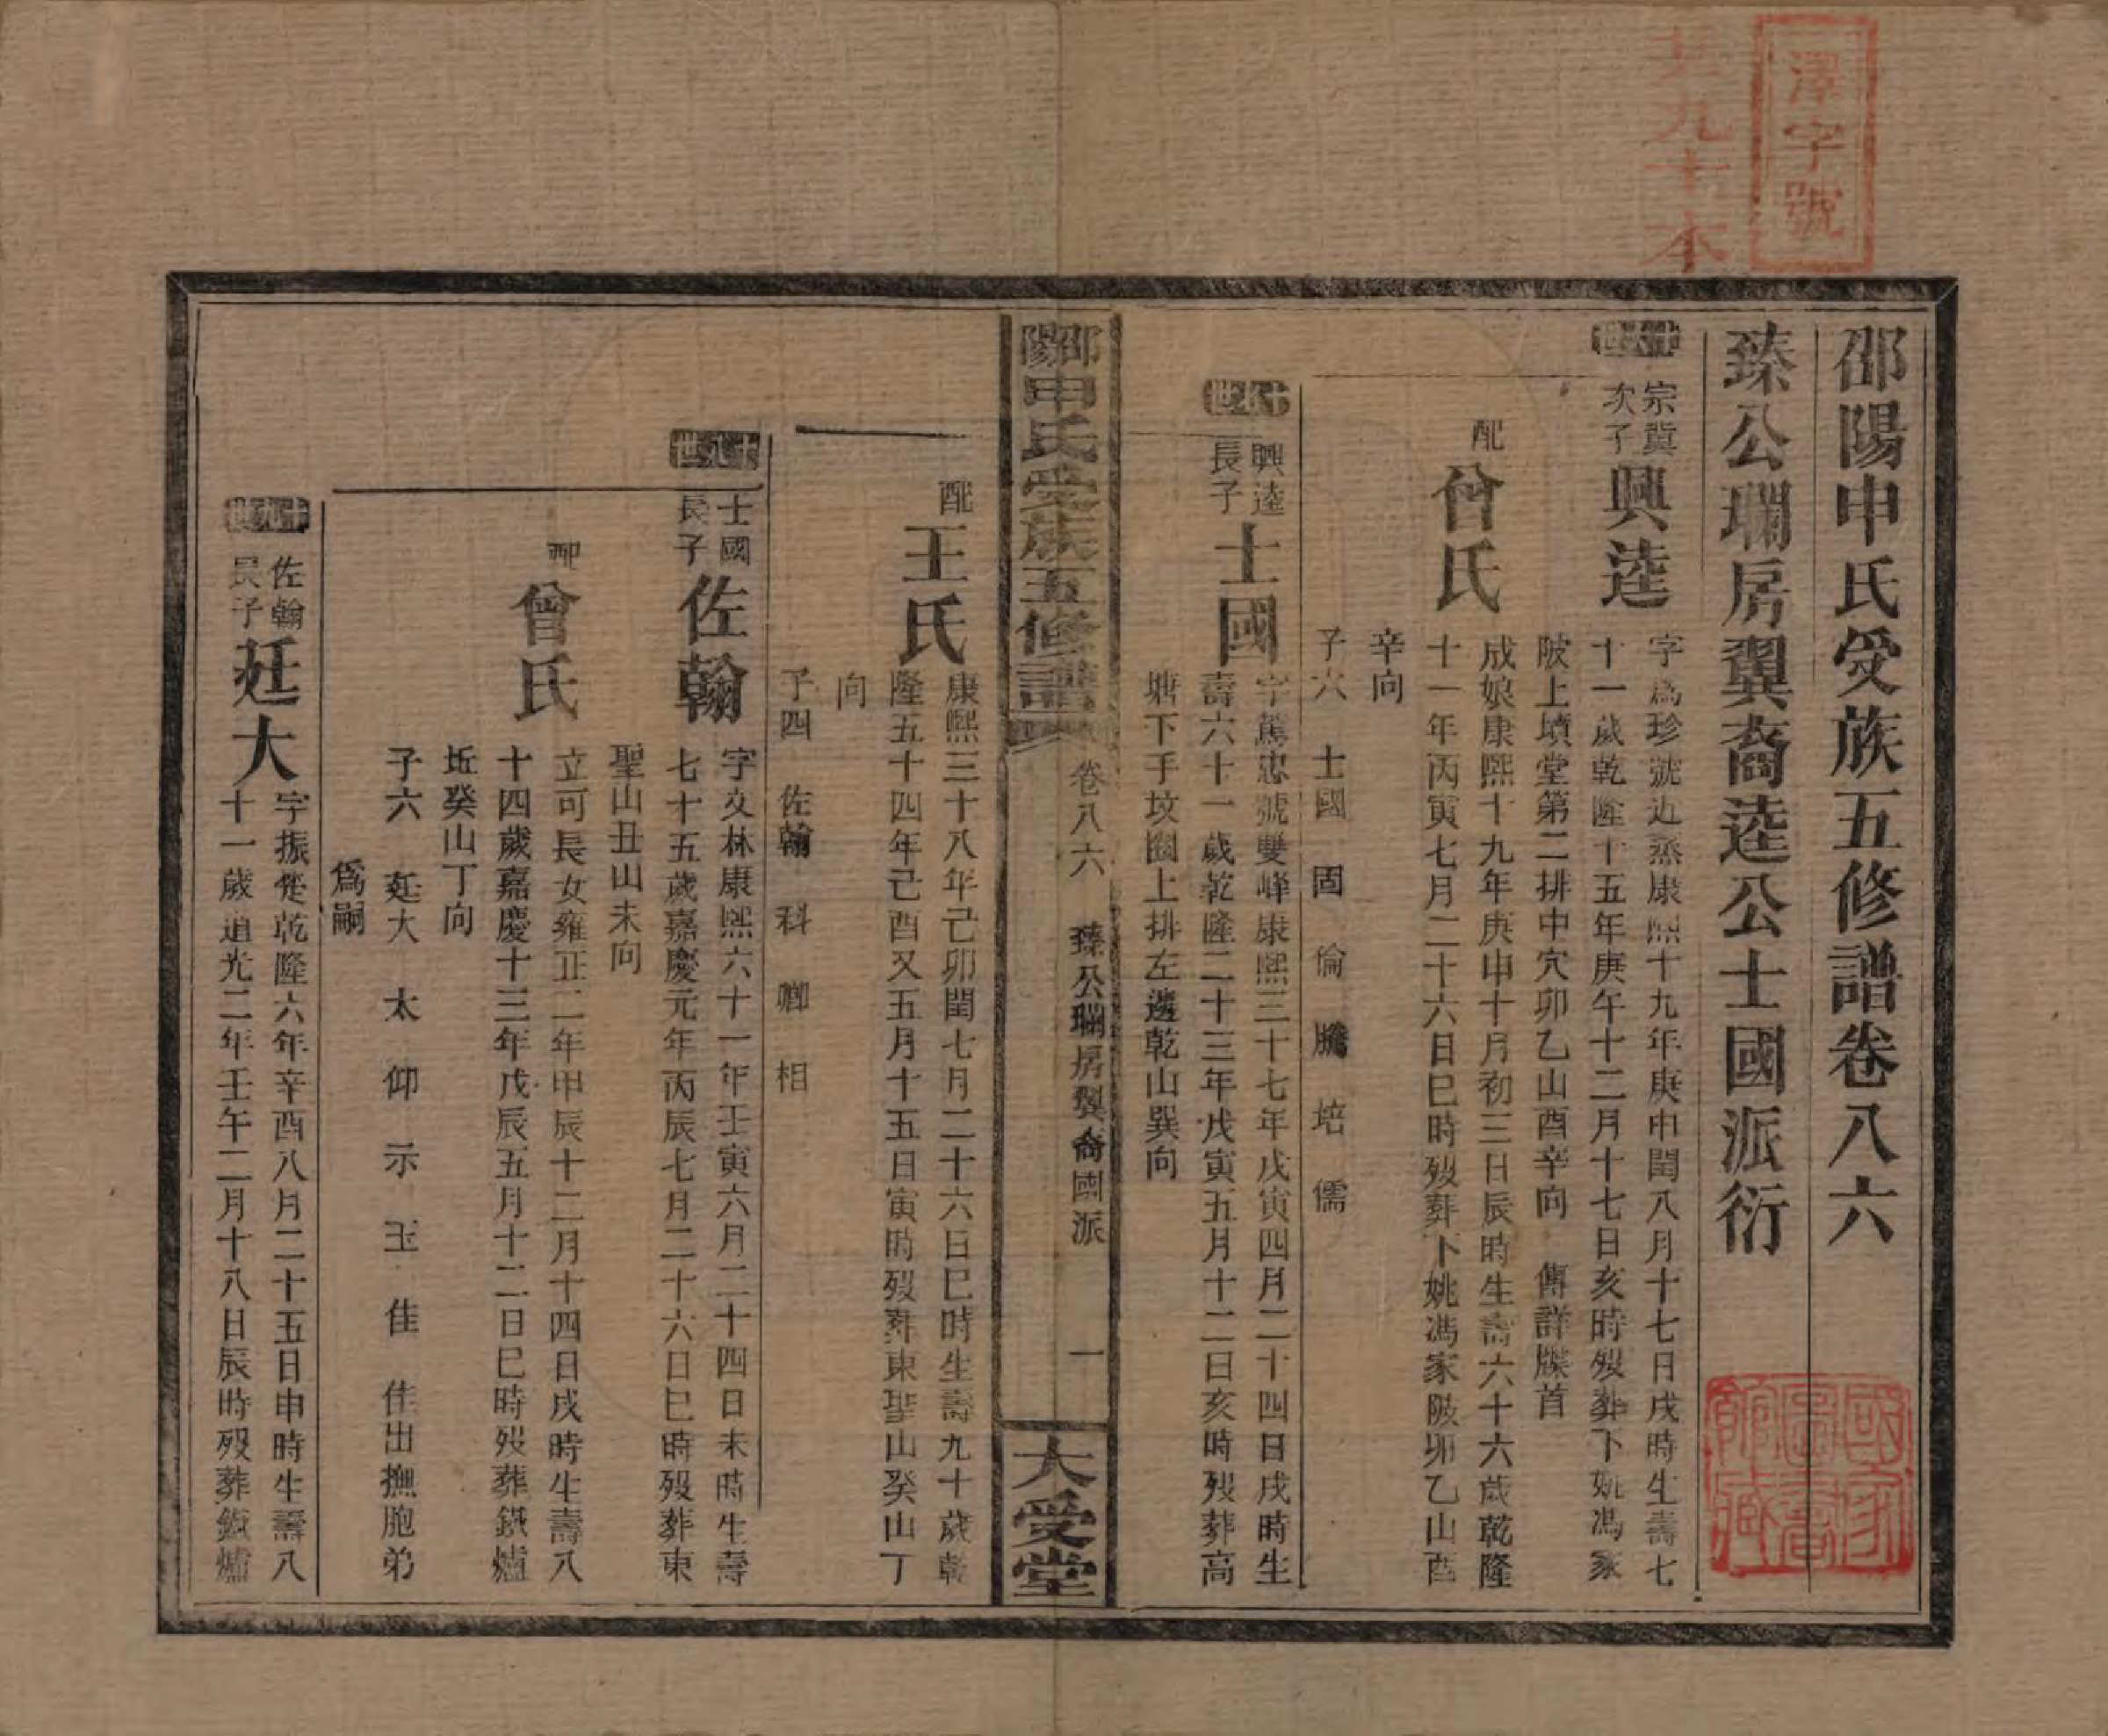 澤字號
共九十本
邵陽申氏受族五修譜卷八六
臻公瓓房翼裔逵公士國派衍
國家圖書館藏
十六世
宗冀次子
興逵
字為珍號近燕康熙十九年庚申閏八月十七日戌時生壽七
十一歲乾隆十五年庚午十二月十七日亥時歿葬下姚馮家
陂上墳堂第二排中穴卯乙山酉辛向 傳詳牒首
配
曾氏
成娘康熙十九年庚申十月初三日辰時生壽六十六歲乾隆
十一年丙寅七月二十六日巳時歿葬下姚馮家陂卯乙山酉
辛向
子六 士國 固 倫 騰 培 儒
十七世
興逵長子
士國
字篤忠號雙峰康熙三十七年戊寅四月二十四日戌時生
壽六十一歲乾隆二十三年戊寅五月十二日亥時歿葬高
塘下手坟圈上排左邊乾山巽向
邵陽申氏受族五修譜
卷八六
臻公瓓房翼裔國派
一
大受堂
配
王氏
康熙三十八年己卯閏七月二十六日巳時生壽九十歲乾
隆五十四年己酉又五月十五日寅時歿葬東聖山癸山丁
向
子四 佐翰 科 卿 相
十八世
士國長子
佐翰
字文林康熙六十一年壬寅六月二十四日未時生壽
七十五歲嘉慶元年丙辰七月二十六日巳時歿葬東
聖山丑山未向
配
曾氏
立可長女雍正二年甲辰十二月十四日戌時生壽八
十四歲嘉慶十三年戊辰五月十二日巳時歿葬鐵爐
坵癸山丁向
子六 廷大 太 仰 示 玉 佳 佳出撫胞弟
為嗣
十九世
佐翰長子
廷大
字振聲乾隆六年辛酉八月二十五日申時生壽八
十一歲道光二年壬午二月十八日辰時歿葬鐵爐